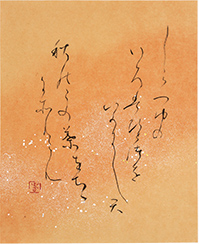 しらつゆの
いろはひとつを
いかにして
秋のこの葉をちゞ
にそむらん